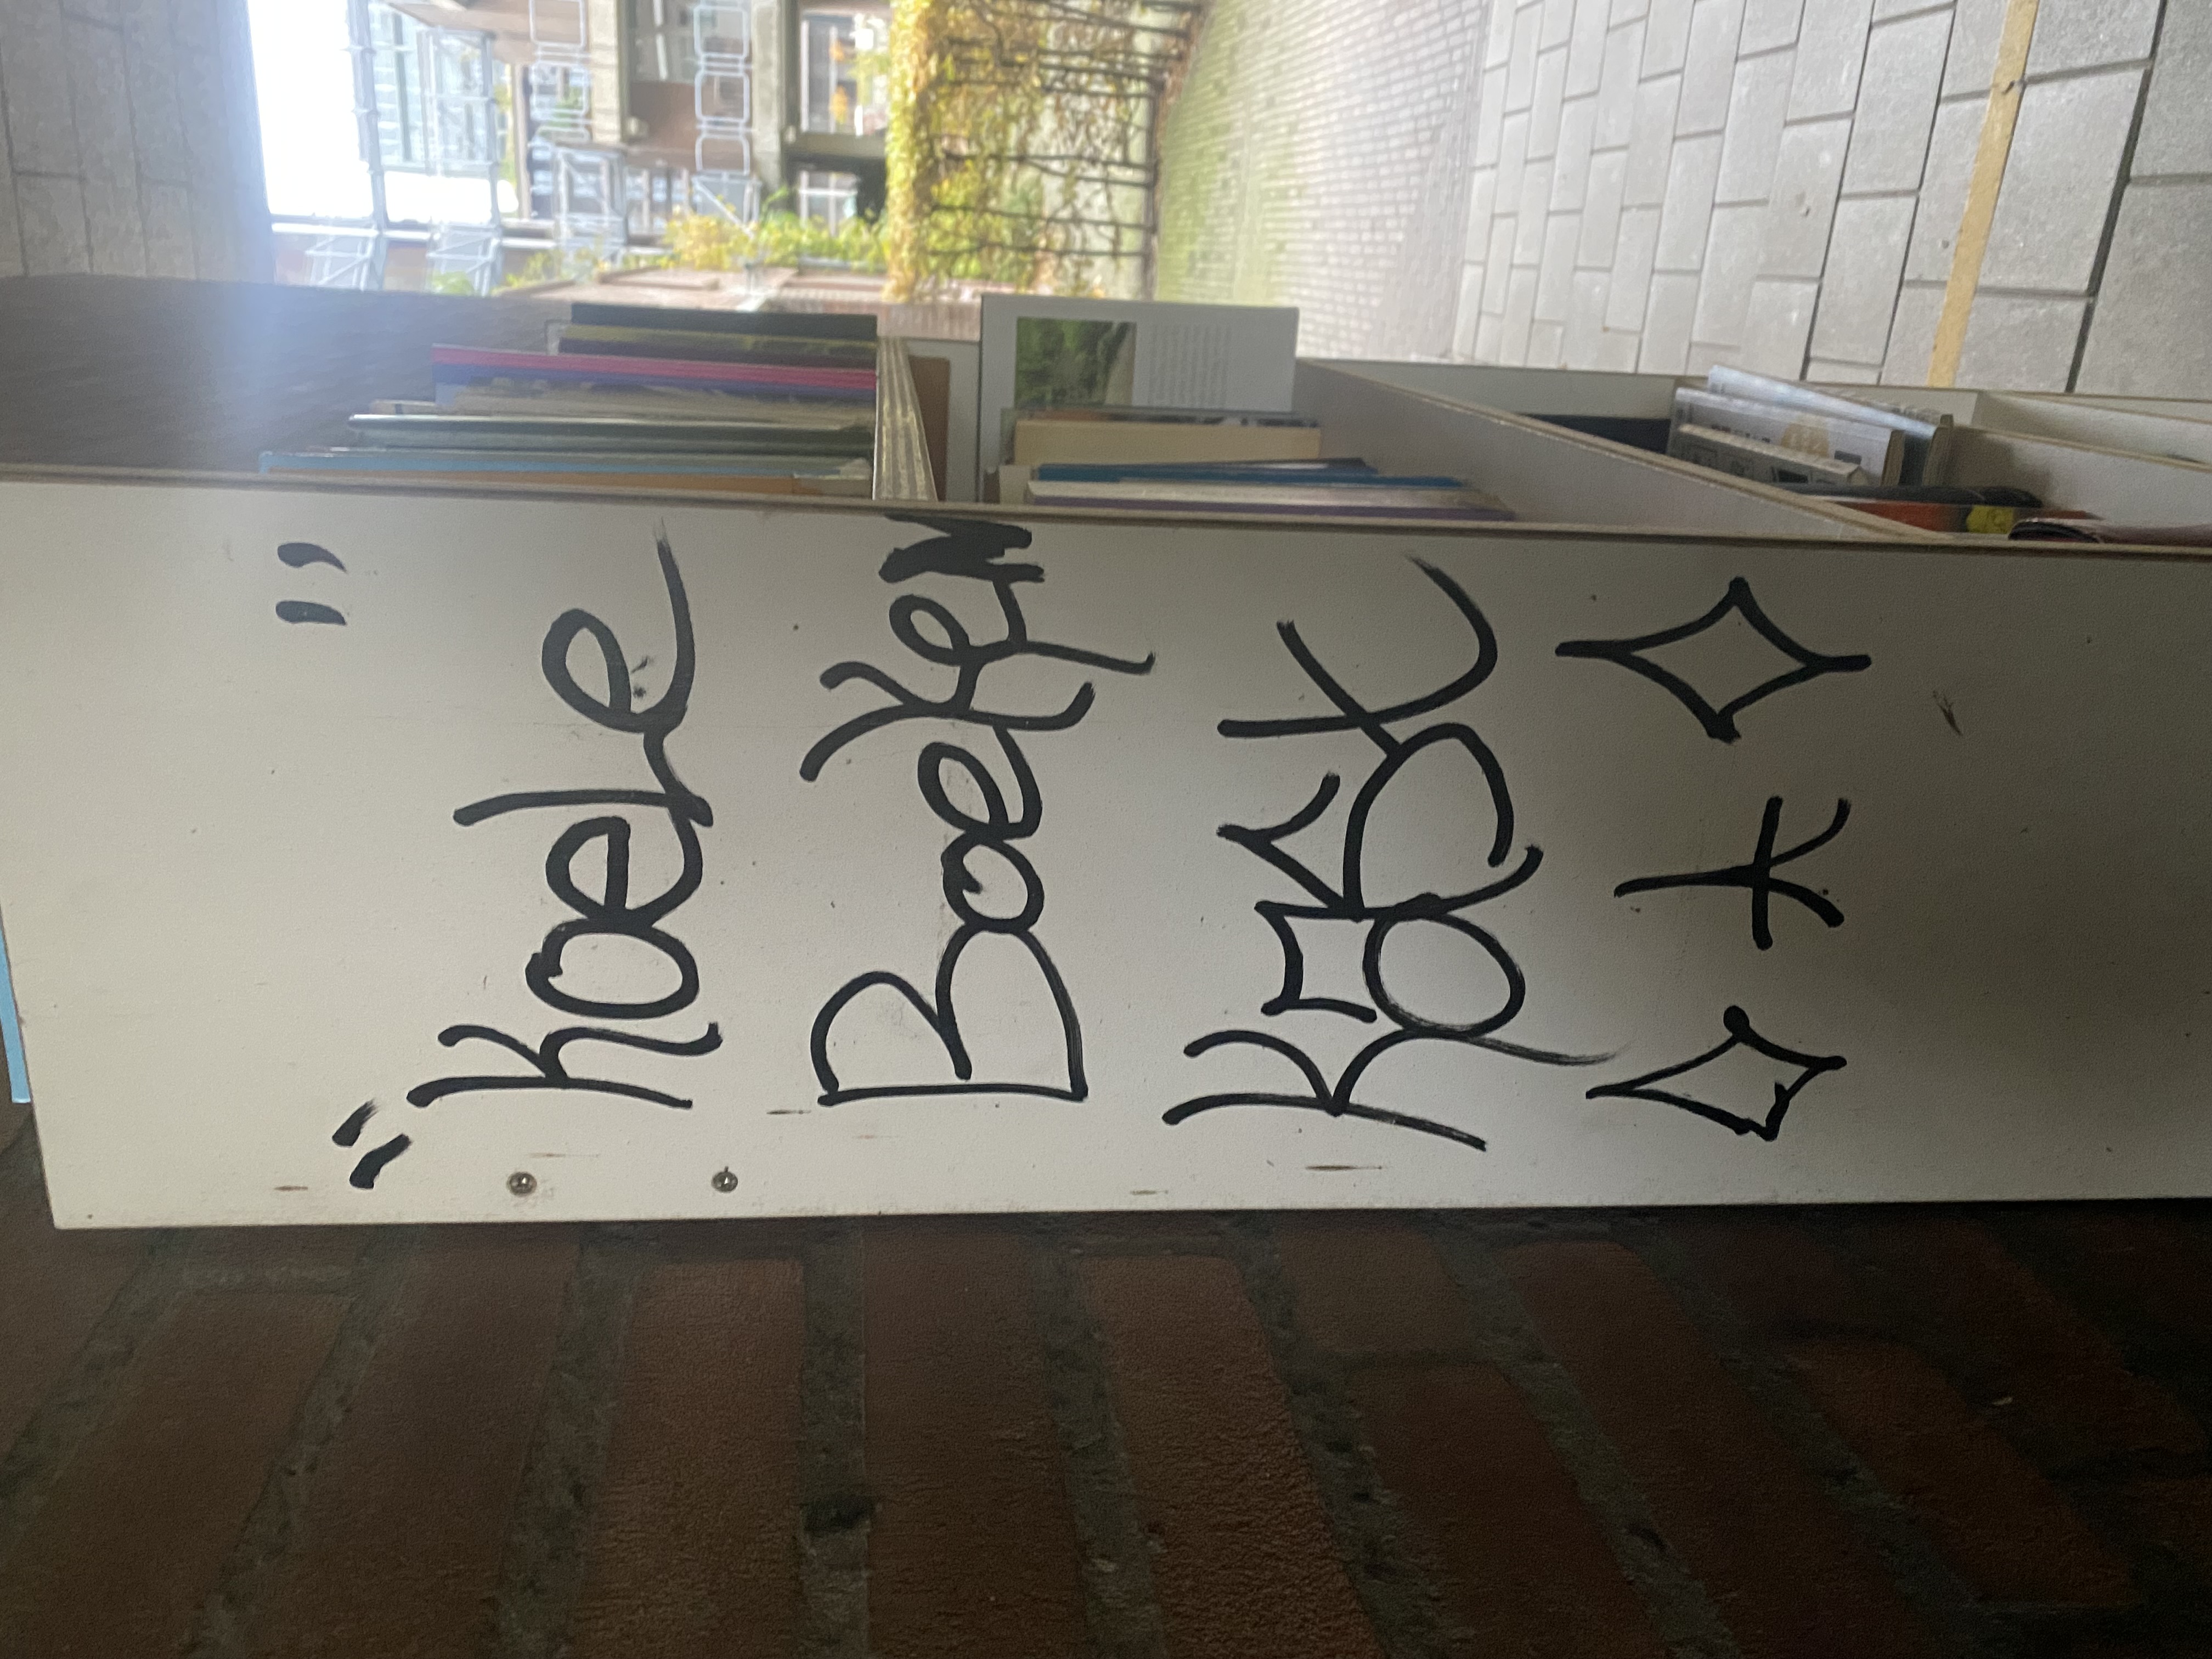 "Koele"
Boeken
Kast